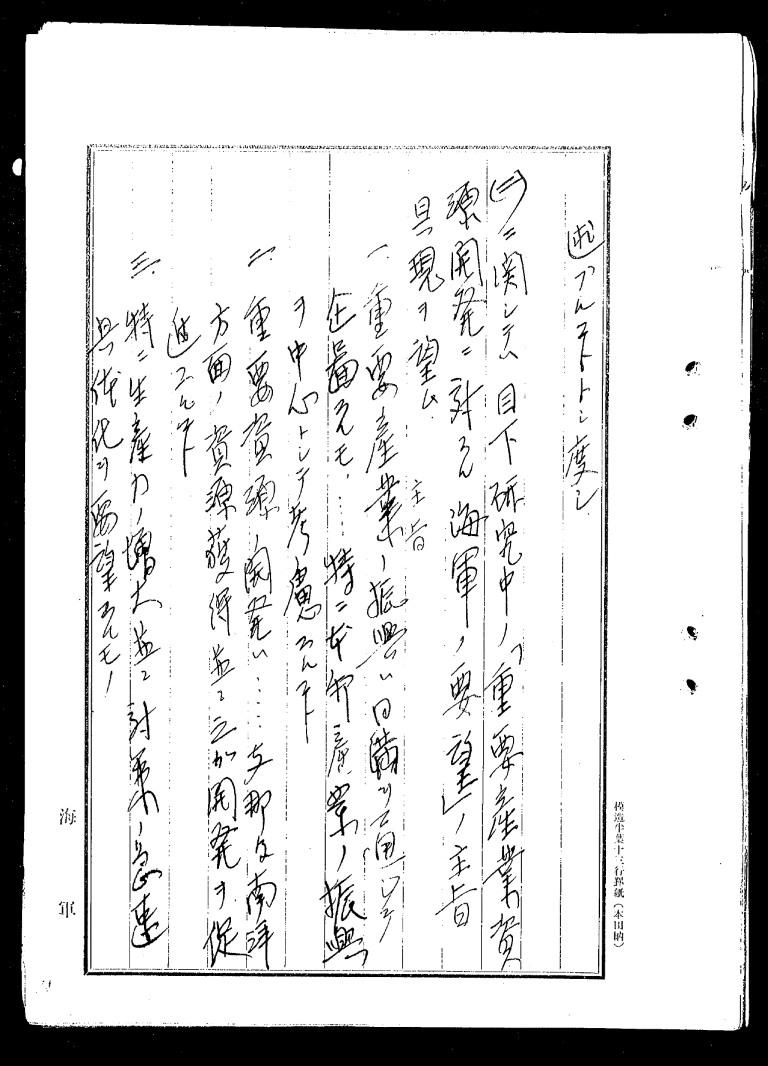 アルコトトシ度シ
(二)ニ関シテハ目下研究中ノ「重要産業資
源開発ニ対スル海軍ノ要望」ノ主旨
具現ヲ望ム
主旨
一、重要産業ノ振興ハ日満ヲ通シテ
企図スルモ、……特ニ本邦産業ノ振興
ヲ中心トシテ考慮スルコト
二、重要資源ノ開発ハ……支那及南洋
方面ノ資源獲得並ニ之カ開発ヲ促
進スルコト
三、特ニ生産力ノ増大並ニ対策ノ急速
具体化ヲ要望スルモノ
海軍
模造半葉十三行罫紙(本田納)